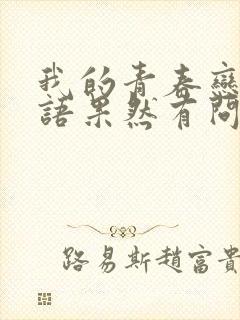 我的青春戀
語果然有問
路易斯趙富貴